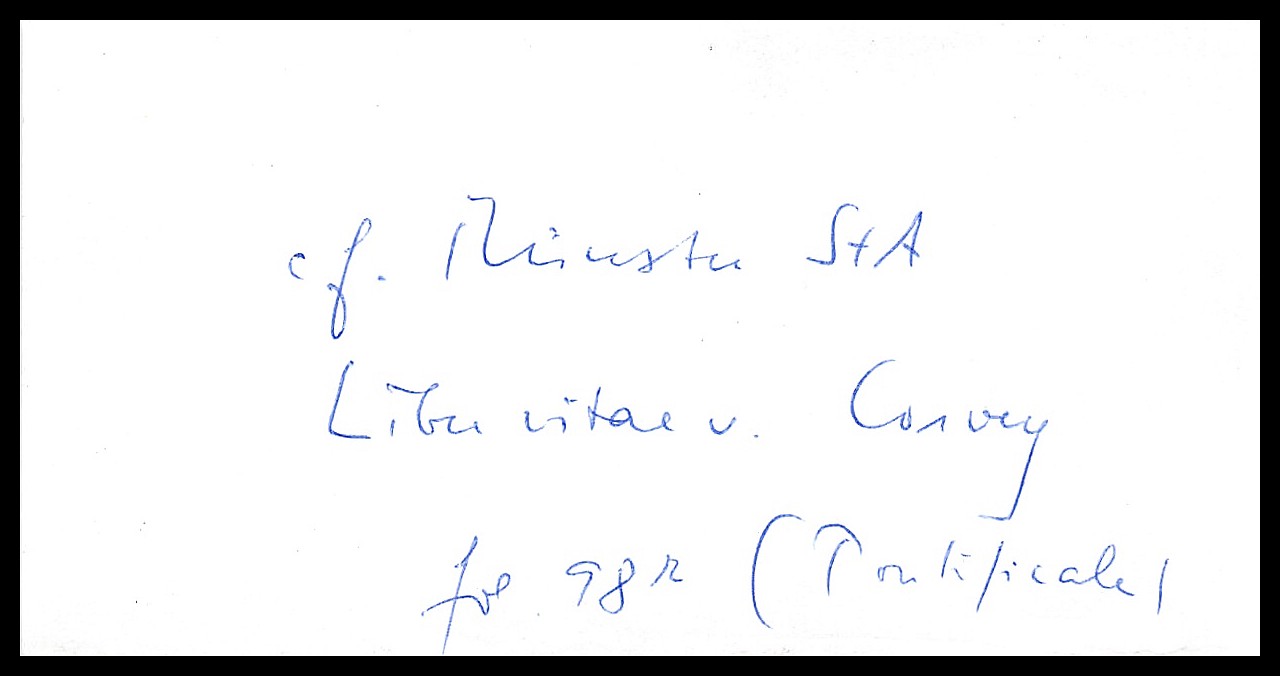 cf. Münster StA
Liber vitae v. Corvey
fol. 98r (Pontificale)